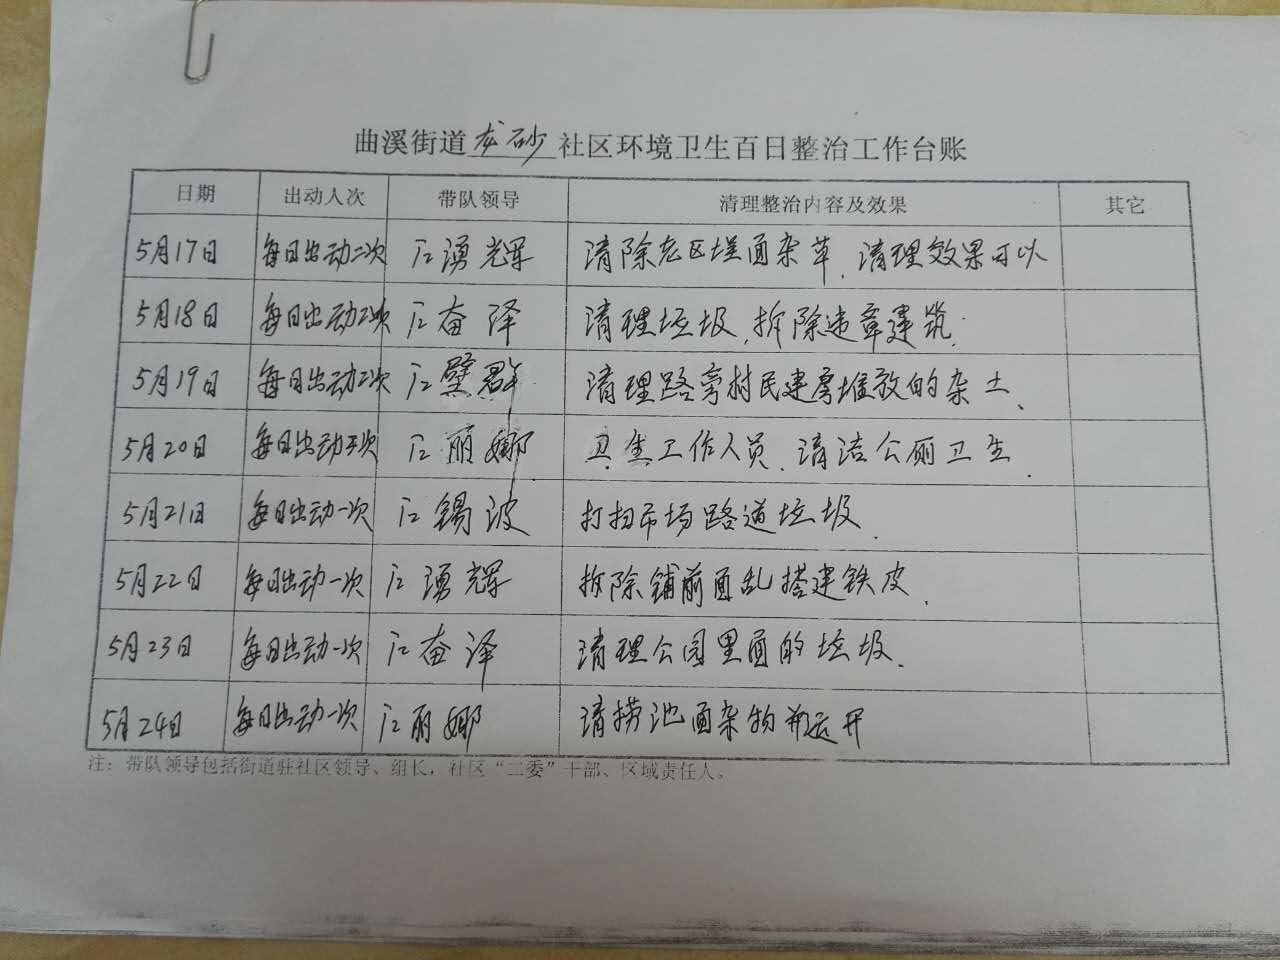 曲溪街道龙砂社区环境卫生百日整治工作台账
日期 出动人次 带队领导 清理整治内容及效果 其它
5月17日 每日出动二次 江湧辉 清除龙区埕面杂草,清理效果可以
5月18日 每日出动二次 江奋泽 清理垃圾,拆除违章建筑.
5月19日 每日出动二次 江壁群 清理路旁村民建房堆放的杂土、
5月20日 每日出动 次 江丽娜 卫生工作人员,清洁公厕卫生.
5月21日 每日出动一次 江锡波 打扫市场路道垃圾.
5月22日 每日出动一次 江湧辉 拆除铺前面乱搭建铁皮.
5月23日 每日出动一次 江奋泽 清理公园里面的垃圾.
5月24日 每日出动一次 江丽娜 清捞池面杂物并运开
注：带队领导包括街道驻社区领导、组长，社区“二委”干部、区域责任人。